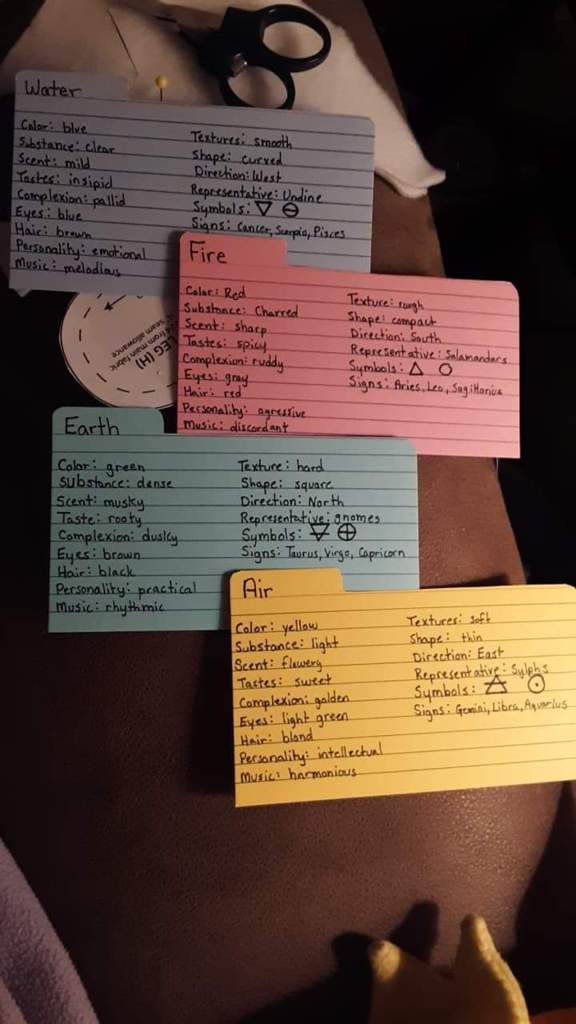 Water
Color: blue
Substance: clear
Scent: mild
Tastes: insipid
Complexion: pallid
Eyes: blue
Hair: brown
Personality: emotional
Music: melodious
Textures: smooth
Shape: curved
Direction: West
Representative: Undine
Symbols: ▽ ⊖
Signs: Cancer, Scorpio, Pisces
Fire
Color: Red
Substance: Charred
Scent: sharp
Tastes: spicy
Complexion: ruddy
Eyes: gray
Hair: red
Personality: agressive
Music: discordant
Texture: rough
Shape: compact
Direction: South
Representative: Salamanders
Symbols: △ ○
Signs: Aries, Leo, Sagittarius
LEG (H)
4 from main fabric
seam allowance
Earth
Color: green
Substance: dense
Scent: musky
Taste: rooty
Complexion: dusky
Eyes: brown
Hair: black
Personality: practical
Music: rhythmic
Texture: hard
Shape: square
Direction: North
Representative: gnomes
Symbols: 🜃 ⊕
Signs: Taurus, Virgo, Capricorn
Air
Color: yellow
Substance: light
Scent: flowery
Tastes: sweet
Complexion: golden
Eyes: light green
Hair: blond
Personality: intellectual
Music: harmonious
Textures: soft
Shape: thin
Direction: East
Representative: Sylphs
Symbols: 🜁 ⊙
Signs: Gemini, Libra, Aquarius